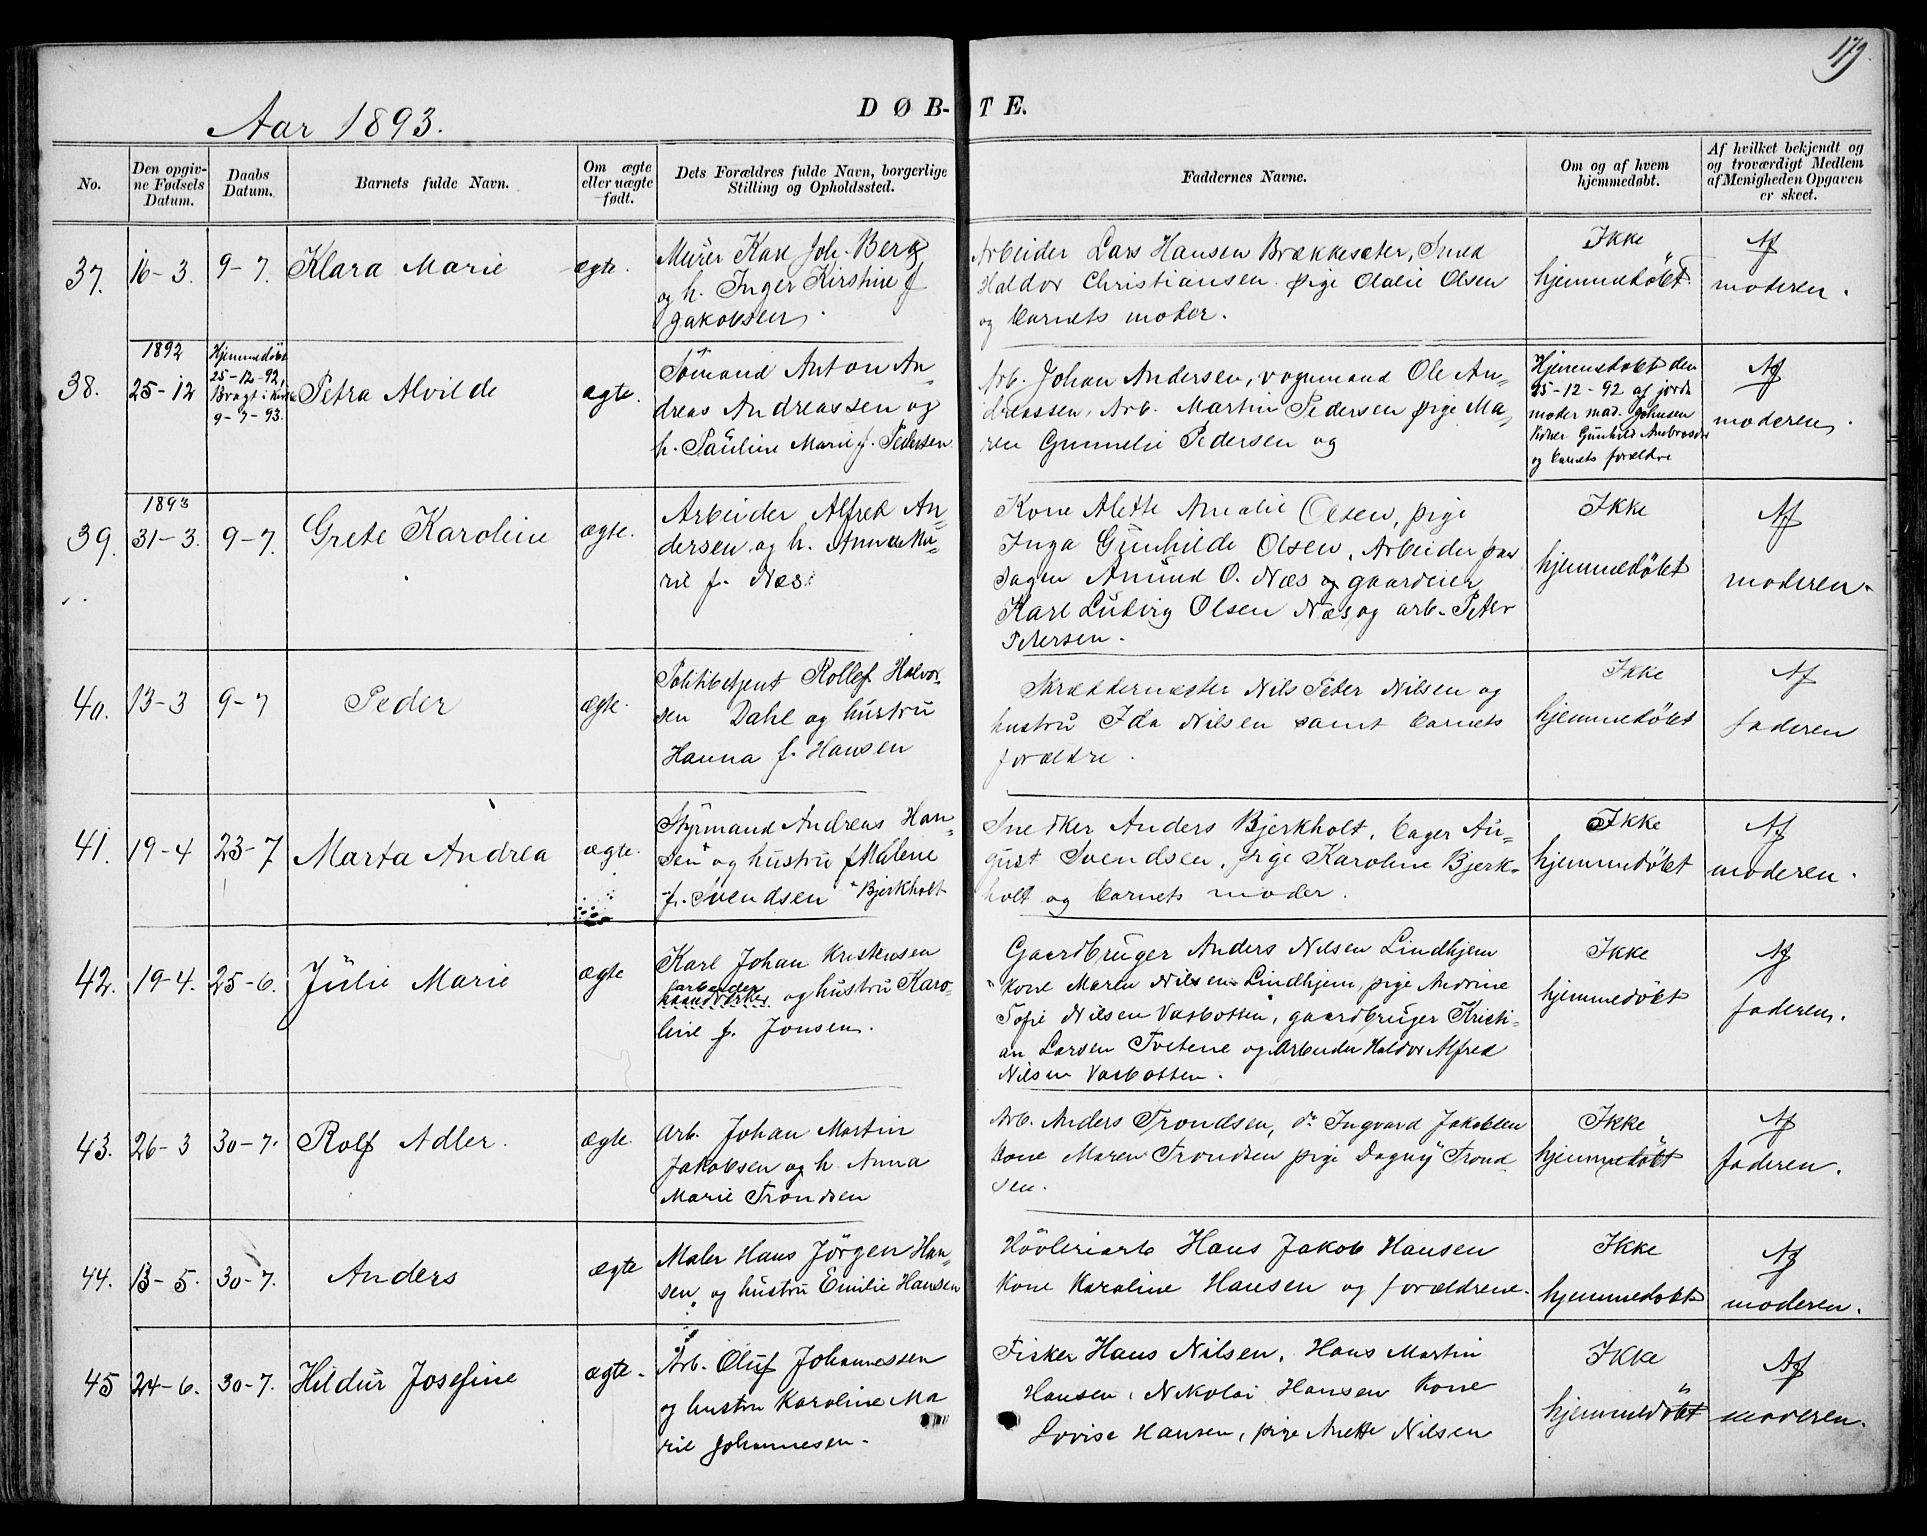 179.
Aar 1893.
DØB-TE.
No.
Den opgiv-
ne Fødsels
Datum.
Daabs
Datum.
Barnets fulde Navn.
Om ægte
eller uægte
født.
Dets Forældres fulde Navn, borgerlige
Stilling og Opholdssted.
Faddernes Navne.
Om og af hvem
hjemmedøbt.
Af hvilket bekjendt og
og troværdigt Medlem
af Menigheden Opgaven
er skeet.
37.
16-3.
9-7.
Klara Marie
ægte.
Murer Karl Joh. Berg
og h. Inger Kirstine f
Jakobsen.
Arbeider Lars Hansen Brækkesæter, Smed
Haldor Christiansen. pige Olalie Olsen
og barnets moder.
Ikke
hjemmedøbt.
Af
moderen.
38.
1892
25-12
Hjemmedøbt
25-12-92,
Bragt i kirke
9-7-93.
Petra Alvilde
ægte.
Sømand Anton An-
dreas Andreassen og
h. Pauline Marie f. Pedersen
Arb. Johan Andersen, vognmand Ole An-
dreassen, Arb. Martin Pedersen pige Ma-
ren Gunnelie Pedersen og
Hjemmedøbt den
25-12-92 af jord-
moder mad. Johnsen
Vidner Gunhild Ambrosdr
og barnets forældre
Af
moderen.
39.
1893
31-3.
9-7.
Grete Karoline
ægte.
Arbeider Alfred An-
dersen og h. Anne Ma-
rie f. Næs.
Kone Alette Amalie Olsen, pige
Inga Gunhilde Olsen, Arbeider paa
sagen Amund O. Næs og gaardeier
Karl Ludvig Olsen Næs, og arb. Peter
Petersen.
Ikke
hjemmedøbt
Af
moderen.
40.
13-3
9-7
Peder
ægte.
Politibetjent Rollef Halvor-
sen Dahl og hustru
Hanna f. Hansen
Skræddermester Nils Peter Nilsen og
hustru Ida Nilsen samt barnets
forældre.
Ikke
hjemmedøbt
Af
faderen
41.
19-4
23-7
Marta Andrea
ægte.
Styrmand Andreas Han-
sen og hustru Malene
f. Svendsen Bjerkholt
Snedker Anders Bjerkholt, bager Au-
gust Svendsen, pige Karoline Bjerk-
holt og barnets moder.
Ikke
hjemmedøbt
Af
moderen.
42.
19-4.
25-6.
Julie Marie
ægte
Karl Johan Kristensen
arbeider
haandværker og hustru Karo-
line f. Jonsen.
Gaardbruger Anders Nilsen Lindhjem
kone Maren Nilsen Lindhjem, pige Andrine
Sofie Nilsen Vasbotten, gaardbruger Kristi-
an Larsen Tvetene og Arbeider Haldor Alfred
Nilsen Vasbotten.
Ikke
hjemmedøbt
Af
faderen.
43.
26-3
30-7.
Rolf Adler.
ægte.
Arb. Johan Martin
Jakobsen og h. Anna
Marie Trondsen
Arb. Anders Trondsen, do Ingvard Jakobsen
kone Maren Trondsen pige Dagny Trond
sen.
Ikke
hjemmedøbt
Af
faderen.
44.
13-5.
30-7.
Anders
ægte
Maler Hans Jörgen Han-
sen og hustru Emilie Hansen
Høvleriarb Hans Jakob Hansen
kone Karoline Hansen og forældrene.
Ikke
hjemmedøbt
Af
moderen.
45
24-6.
30-7.
Hildur Josefine
ægte.
Arb. Oluf Johannessen
og hustru Karoline Ma
rie Johannesen.
Fisker Hans Nilsen, Hans Martin
Hansen, Nikolai Hansen kone
Lovise Hansen, pige Anette Nilsen
Ikke
hjemmedøbt
Af
moderen.